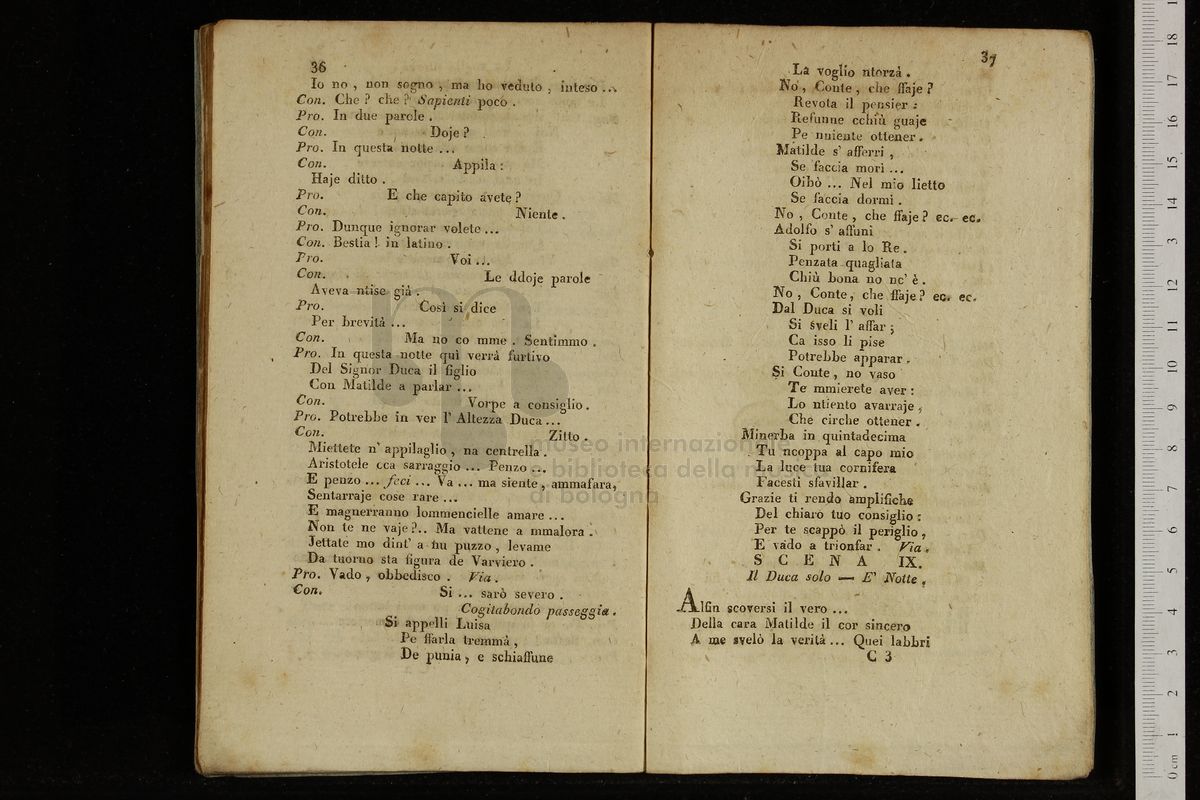 36
Io no, non sogno, ma ho veduto, inteso ...
Con. Che? che? Sapienti poco.
Pro. In due parole.
Con. Doje?
Pro. In questa notte ...
Con. Appila:
Haje ditto.
Pro. E che capito avete?
Con. Niente.
Pro. Dunque ignorar volete ...
Con. Bestia! in latino.
Pro. Voi ...
Con. Le ddoje parole
Aveva ntise già.
Pro. Così si dice
Per brevità ...
Con. Ma no co mme. Sentimmo.
Pro. In questa notte quì verrà furtivo
Del Signor Duca il figlio
Con Matilde a parlar ...
Con. Vorpe a consiglio.
Pro. Potrebbe in ver l'Altezza Duca ...
Con. Zitto.
Miettete n' appilaglio, na centrella.
Aristotele cca sarraggio ... Penzo ...
E penzo ... feci ... Va ... ma siente, ammafara,
Sentarraje cose rare ...
E magnerranno lommencielle amare ...
Non te ne vaje?.. Ma vattene a mmalora.
Jettate mo dint' a nu puzzo, levame
Da tuorno sta figura de Varviero.
Pro. Vado, obbedisco. Via.
Con. Si ... sarò severo.
Cogitabondo passeggia.
Si appelli Luisa
Pe ffarla tremmà,
De punia, e schiaffune
37
La voglio ntorzà.
No, Conte, che ffaje?
Revota il pensier:
Refunne cchiù guaje
Pe nniente ottener.
Matilde s' afferri,
Se faccia morì ...
Oibò ... Nel mio lietto
Se faccia dormi.
No, Conte, che ffaje? ec. ec.
Adolfo s' affuni
Si porti a lo Re.
Penzata quagliata
Chiù bona no nc' è.
No, Conte, che ffaje? ec. ec.
Dal Duca si voli
Si sveli l' affar;
Ca isso li pise
Potrebbe apparar.
Si Conte, no vaso
Te mmierete aver:
Lo ntiento avarraje,
Che circhè ottener.
Minerba in quintadecima
Tu ncoppa al capo mio
La luce tua cornifera
Facesti sfavillar.
Grazie ti rendo amplifiche
Del chiaro tuo consiglio:
Per te scappò il periglio,
E vado a trionfar. Via.
SCENA IX.
Il Duca solo — E' Notte.
Alfin scoversi il vero ...
Della cara Matilde il cor sincero
A me svelò la verità ... Quei labbri
C 3
museo internazionale
e biblioteca della musica
di bologna
0 cm 1 2 3 4 5 6 7 8 9 10 11 12 13 14 15 16 17 18